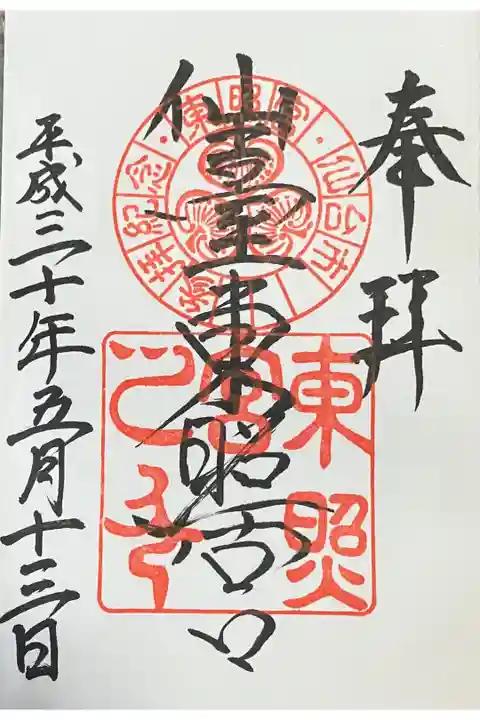 奉拝
仙臺東照宮
平成三十年五月十三日
東照宮・仙台市
参拝記念
東照
宮